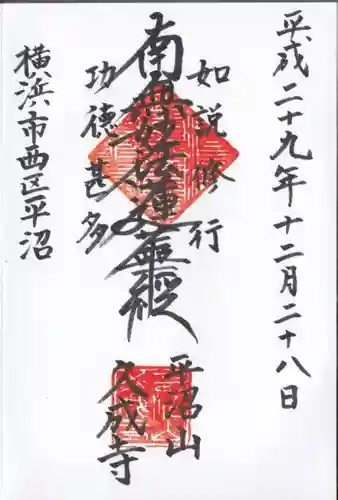 平成二十九年十二月二十八日
如説修行
南無妙法蓮華經
功徳甚多
横浜市西区平沼
平沼山
久成寺